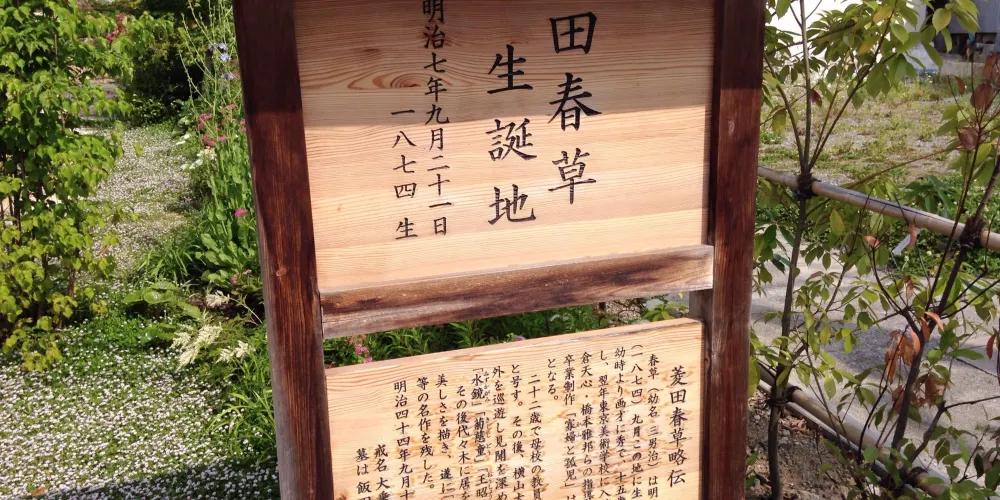 田春草
生誕地
明治七年九月二十一日
一八七四 生
菱田春草略伝
春草(幼名 三男治)は明
(一八七四)九月この地に生
幼時より画才に秀で、十五
し、翌年東京美術学校に入
倉天心・橋本雅邦らの指導
卒業制作「寡婦と孤児」は
となる。
二十二歳で母校の教員
と号す。その後、横山大
外を巡遊し見聞を深め
「水鏡」「菊慈童」「王昭
その後代々木に居を
美しさを描き、遂に「
等の名作を残した。
明治四十四年九月十
戒名 大乗
墓は飯田